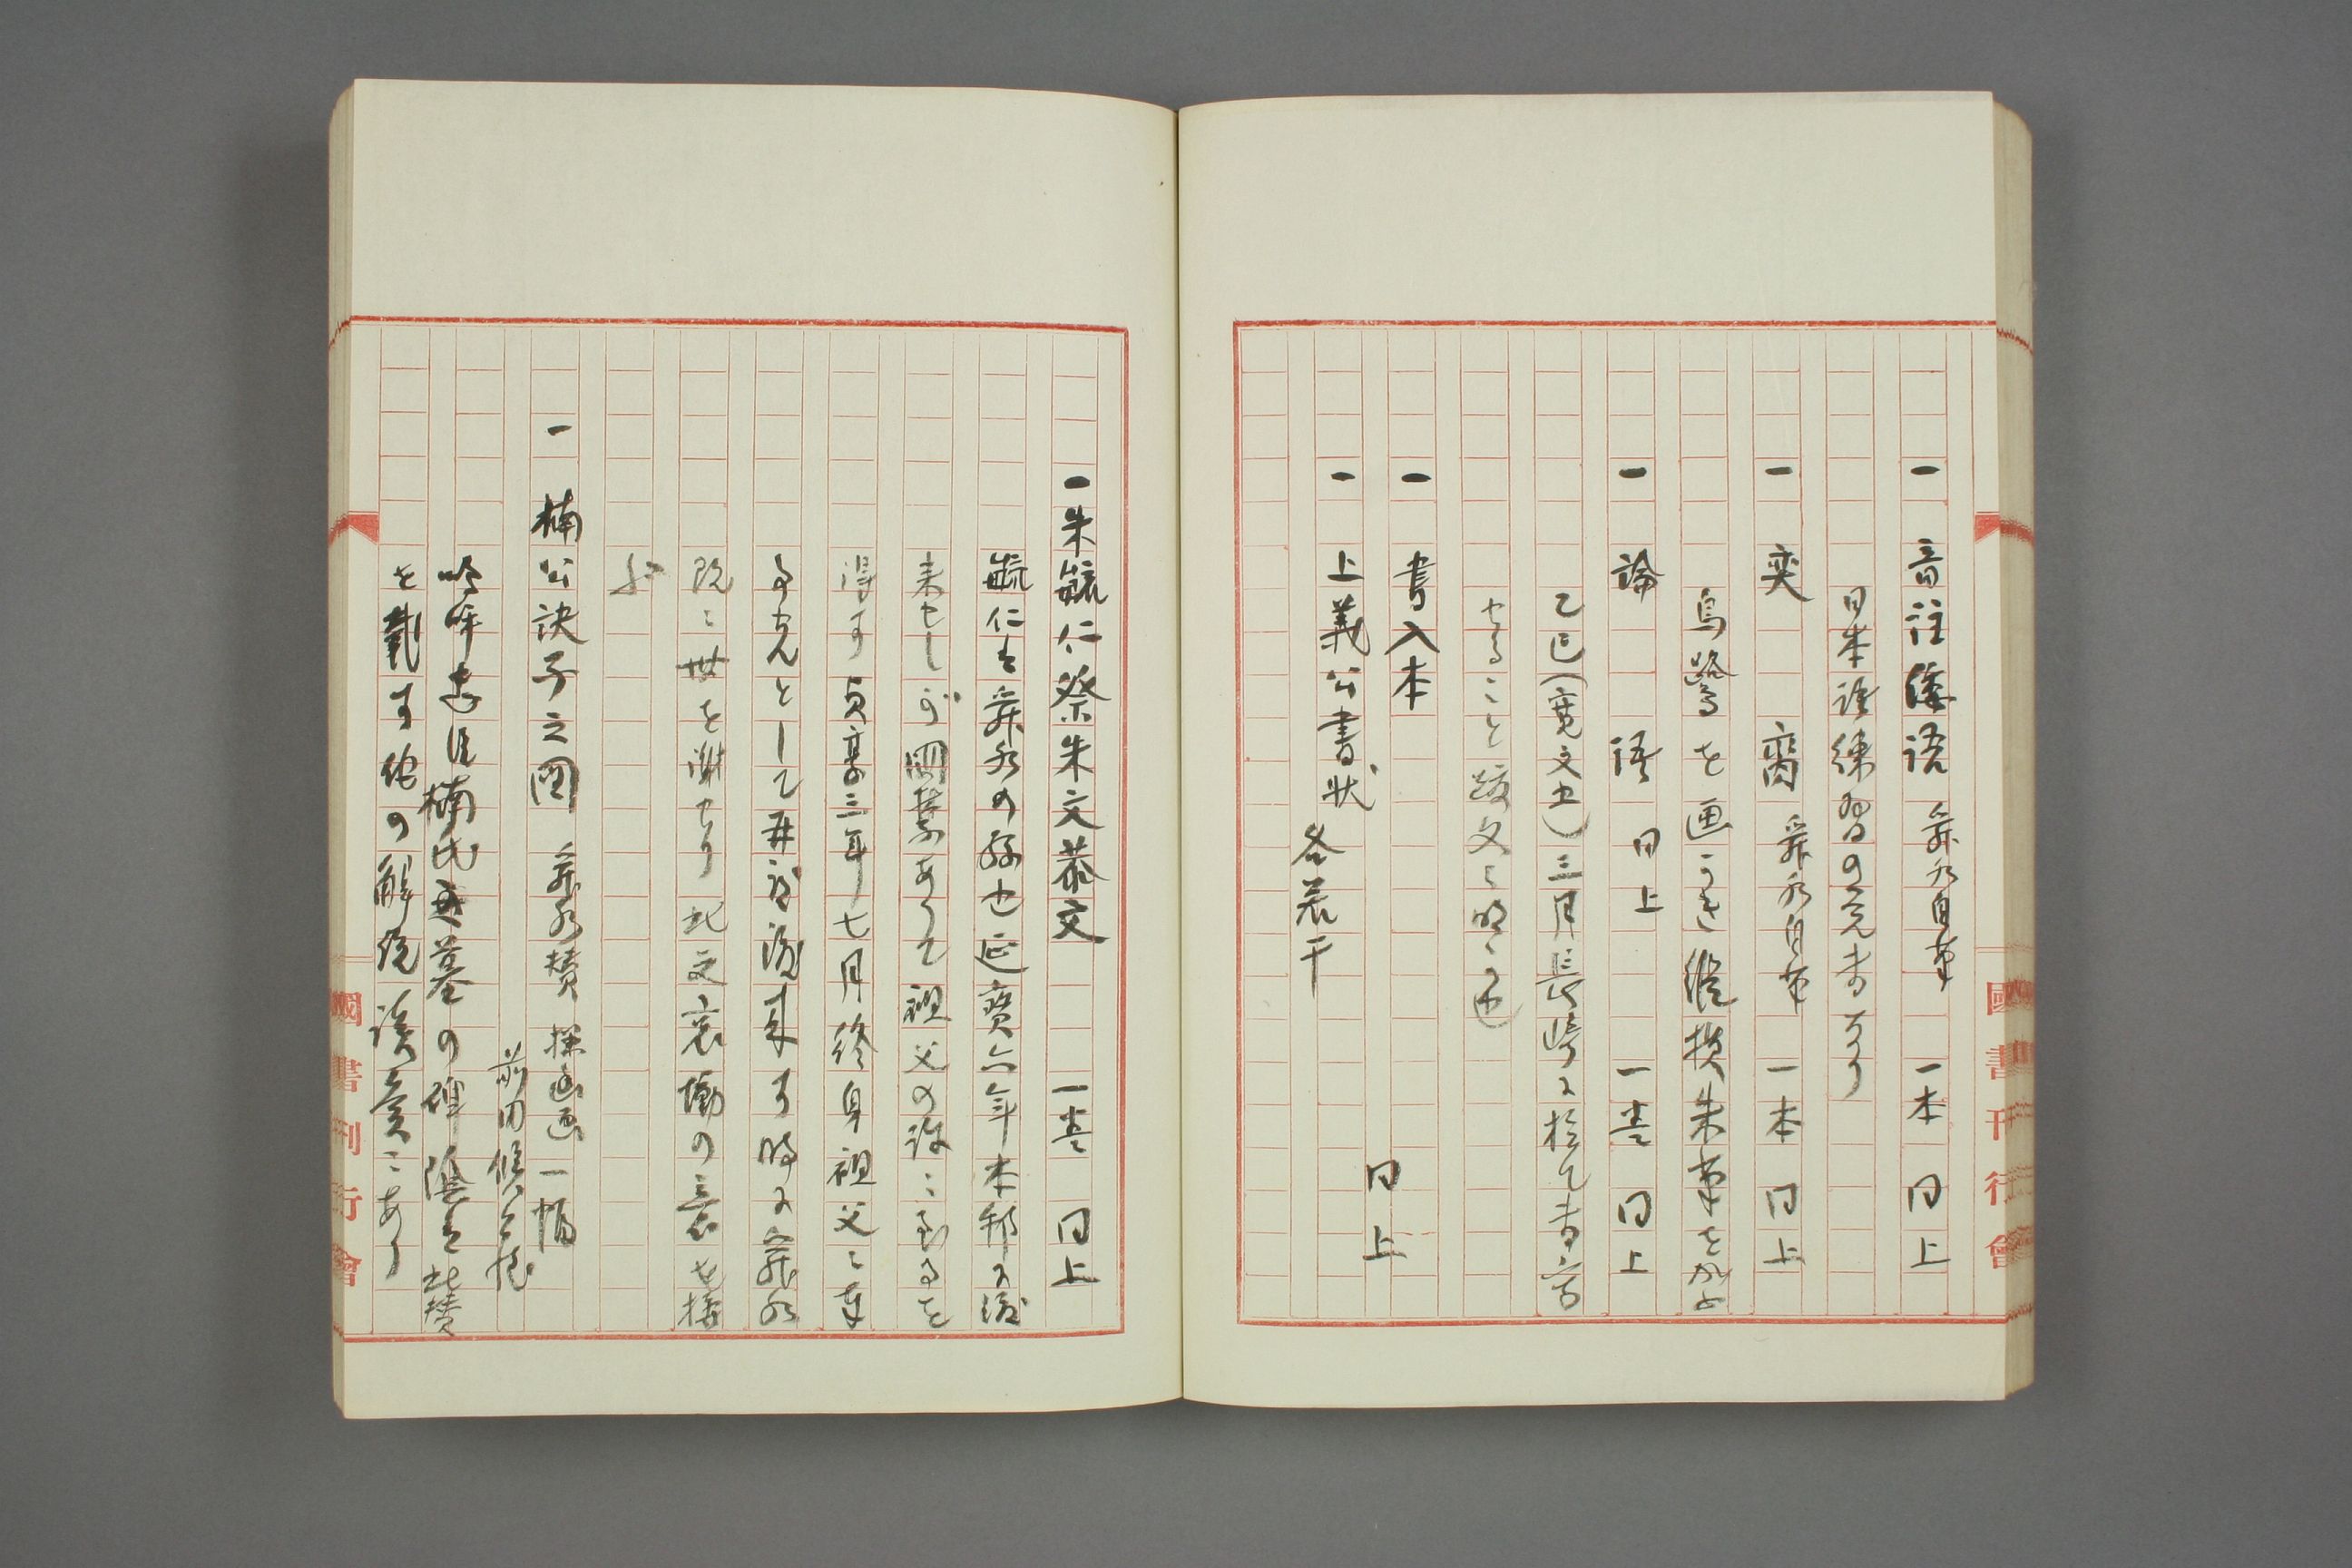 一 音注倭語 舜水自筆 一本 同上
日本語練習の覚書なり
一 奕 商 舜水自筆 一本 同上
鳥鷺を画き
朱筆を加ふ
一 論 語 同上 一巻 同上
乙巳(寛文五)三月長崎に於て書写
せること跋文に明なり
一 書入本 同上
一 上義公書状
各若干
國書刊行會
一朱毓仁祭朱文恭文 一巻 同上
毓仁は舜水の孫也延寶六年本邦に渡
来せしが國禁ありて祖父の許に到るを
得ず貞享三年七月終身祖父に事
んとして再び渡来す時に舜水
既に世を謝せり此文哀慟の意を攄
ぶ
一 楠公訣子之図 舜水賛 探幽画 一幅
前田侯爵
嗚呼忠臣楠氏墓の碑陰は此賛
を載す他の解説
國書刊行會